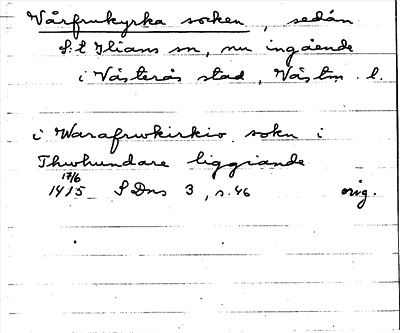 Vårfrukyrka socken, sedan
S:t Ilians sn, nu ingående
i Västerås stad, Västm. l.
i Warafrwkirkio sokn i
Thwhundare liggiande
17/6
1415 SDns 3, s. 46 orig.